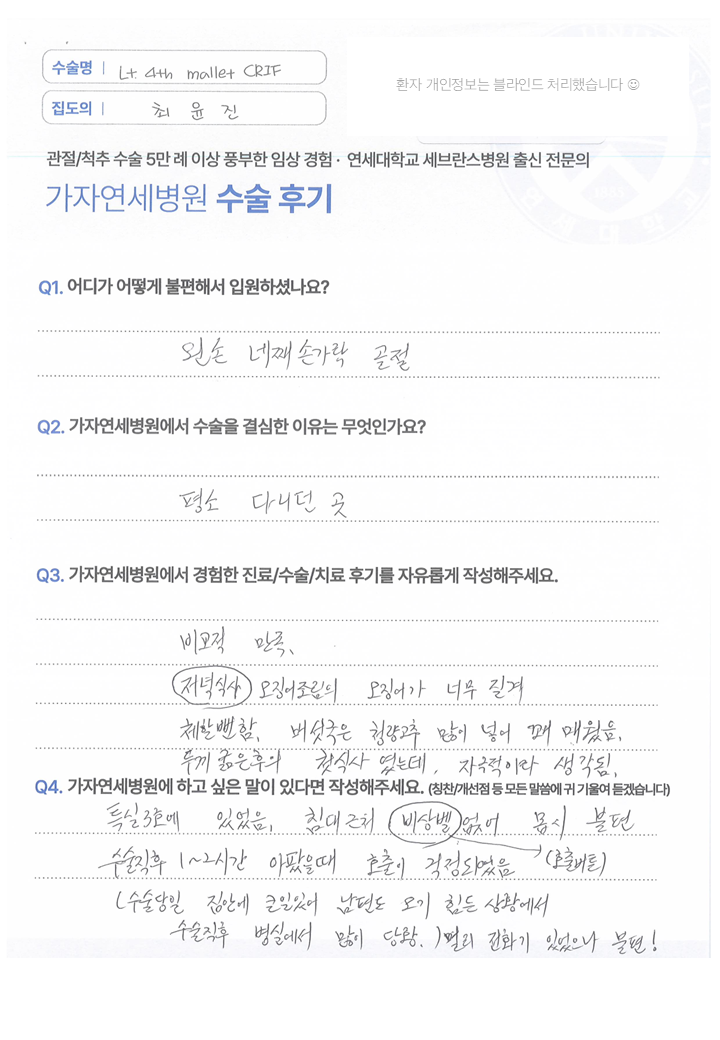 수술명 | Lt 4th mallet CRIF
환자 개인정보는 블라인드 처리했습니다 ☺
집도의 | 최 윤 진
관절/척추 수술 5만 례 이상 풍부한 임상 경험 · 연세대학교 세브란스병원 출신 전문의
가자연세병원 수술 후기
Q1. 어디가 어떻게 불편해서 입원하셨나요?
왼손 네째손가락 골절
Q2. 가자연세병원에서 수술을 결심한 이유는 무엇인가요?
평소 다니던 곳
Q3. 가자연세병원에서 경험한 진료/수술/치료 후기를 자유롭게 작성해주세요.
비교적 만족.
저녁식사 오징어조림의 오징어가 너무 질겨
체할뻔함. 버섯국은 청양고추 많이 넣어 꽤 매웠음.
두끼 굶은후의 첫식사 였는데, 자극적이라 생각됨.
Q4. 가자연세병원에 하고 싶은 말이 있다면 작성해주세요. (칭찬/개선점 등 모든 말씀에 귀 기울여 듣겠습니다)
특실3호에 있었음. 침대근처 비상벨 없어 몹시 불편
수술직후 1~2시간 아팠을때 호출이 걱정되었음 (호출버튼)
(수술당일 집안에 큰일있어 남편도 오기 힘든 상황에서
수술직후 병실에서 많이 당황.) 멀리 전화기 있었으나 불편!